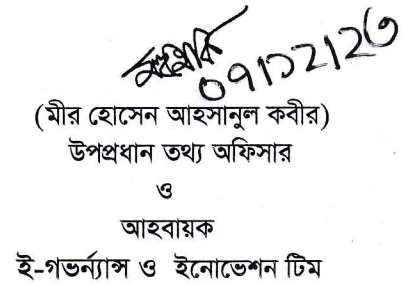 ০৭/১২/২৩
(মীর হোসেন আহসানুল কবীর)
উপপ্রধান তথ্য অফিসার
ও
আহবায়ক
ই-গভর্ন্যান্স ও ইনোভেশন টিম